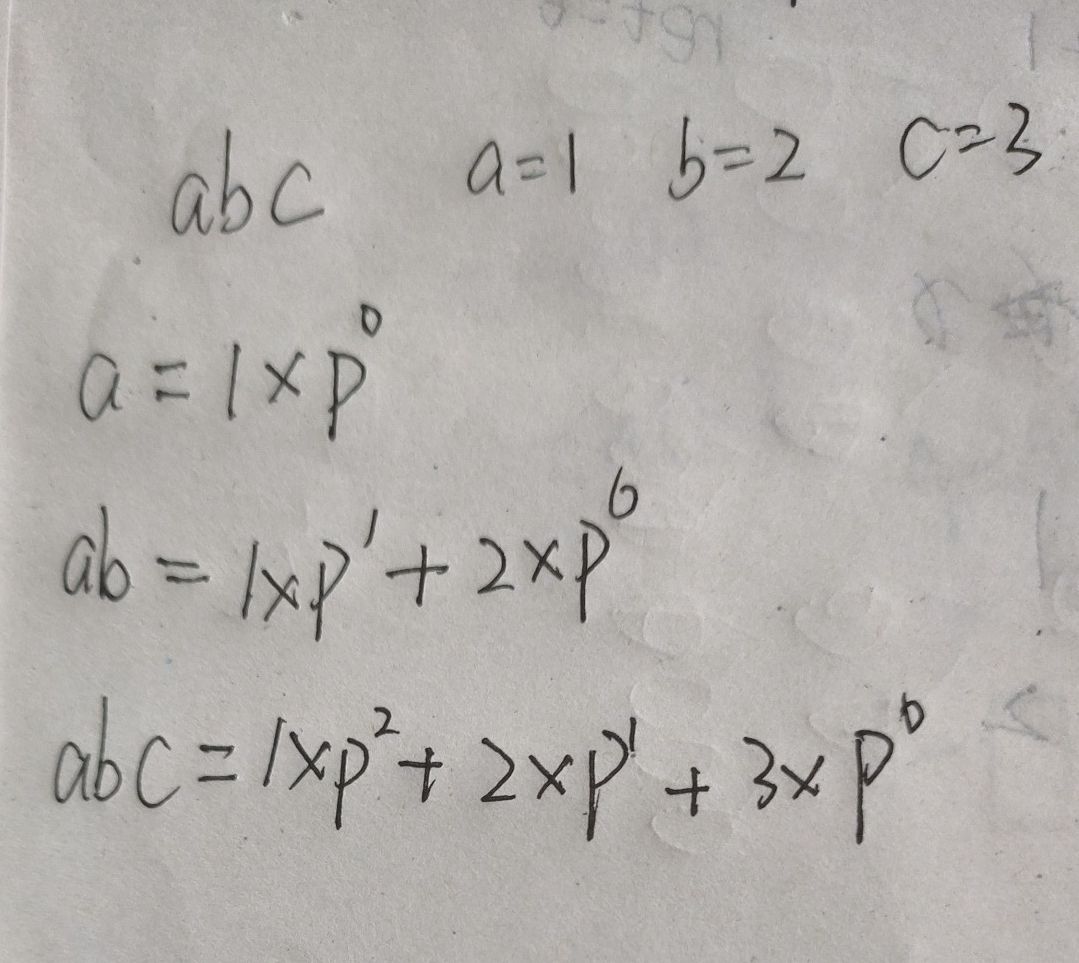 abc a=1 b=2 c=3
a = 1×p⁰
ab = 1×p¹ + 2×p⁰
abc = 1×p² + 2×p¹ + 3×p⁰